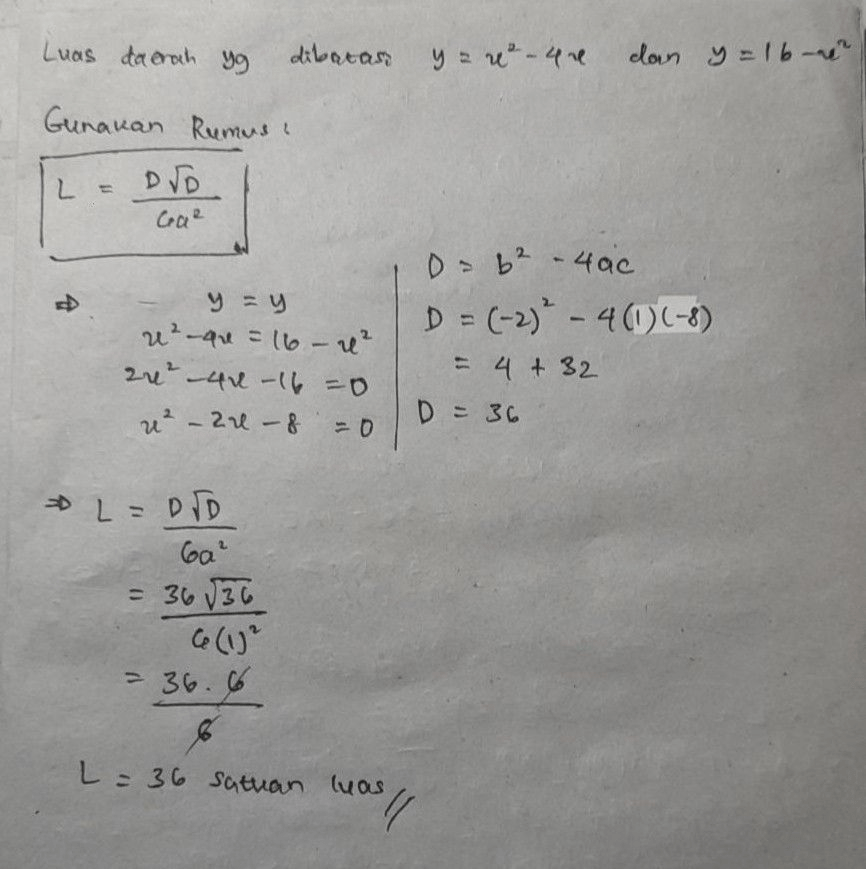 Luas daerah yg dibatasi y = x² - 4x dan y = 16 - x²
Gunakan Rumus :
L = D√D / 6a²
⇒ y = y
x² - 4x = 16 - x²
2x² - 4x - 16 = 0
x² - 2x - 8 = 0
D = b² - 4ac
D = (-2)² - 4(1)(-8)
= 4 + 32
D = 36
⇒ L = D√D / 6a²
= 36√36 / 6(1)²
= 36 . 6 / 6
L = 36 satuan luas //